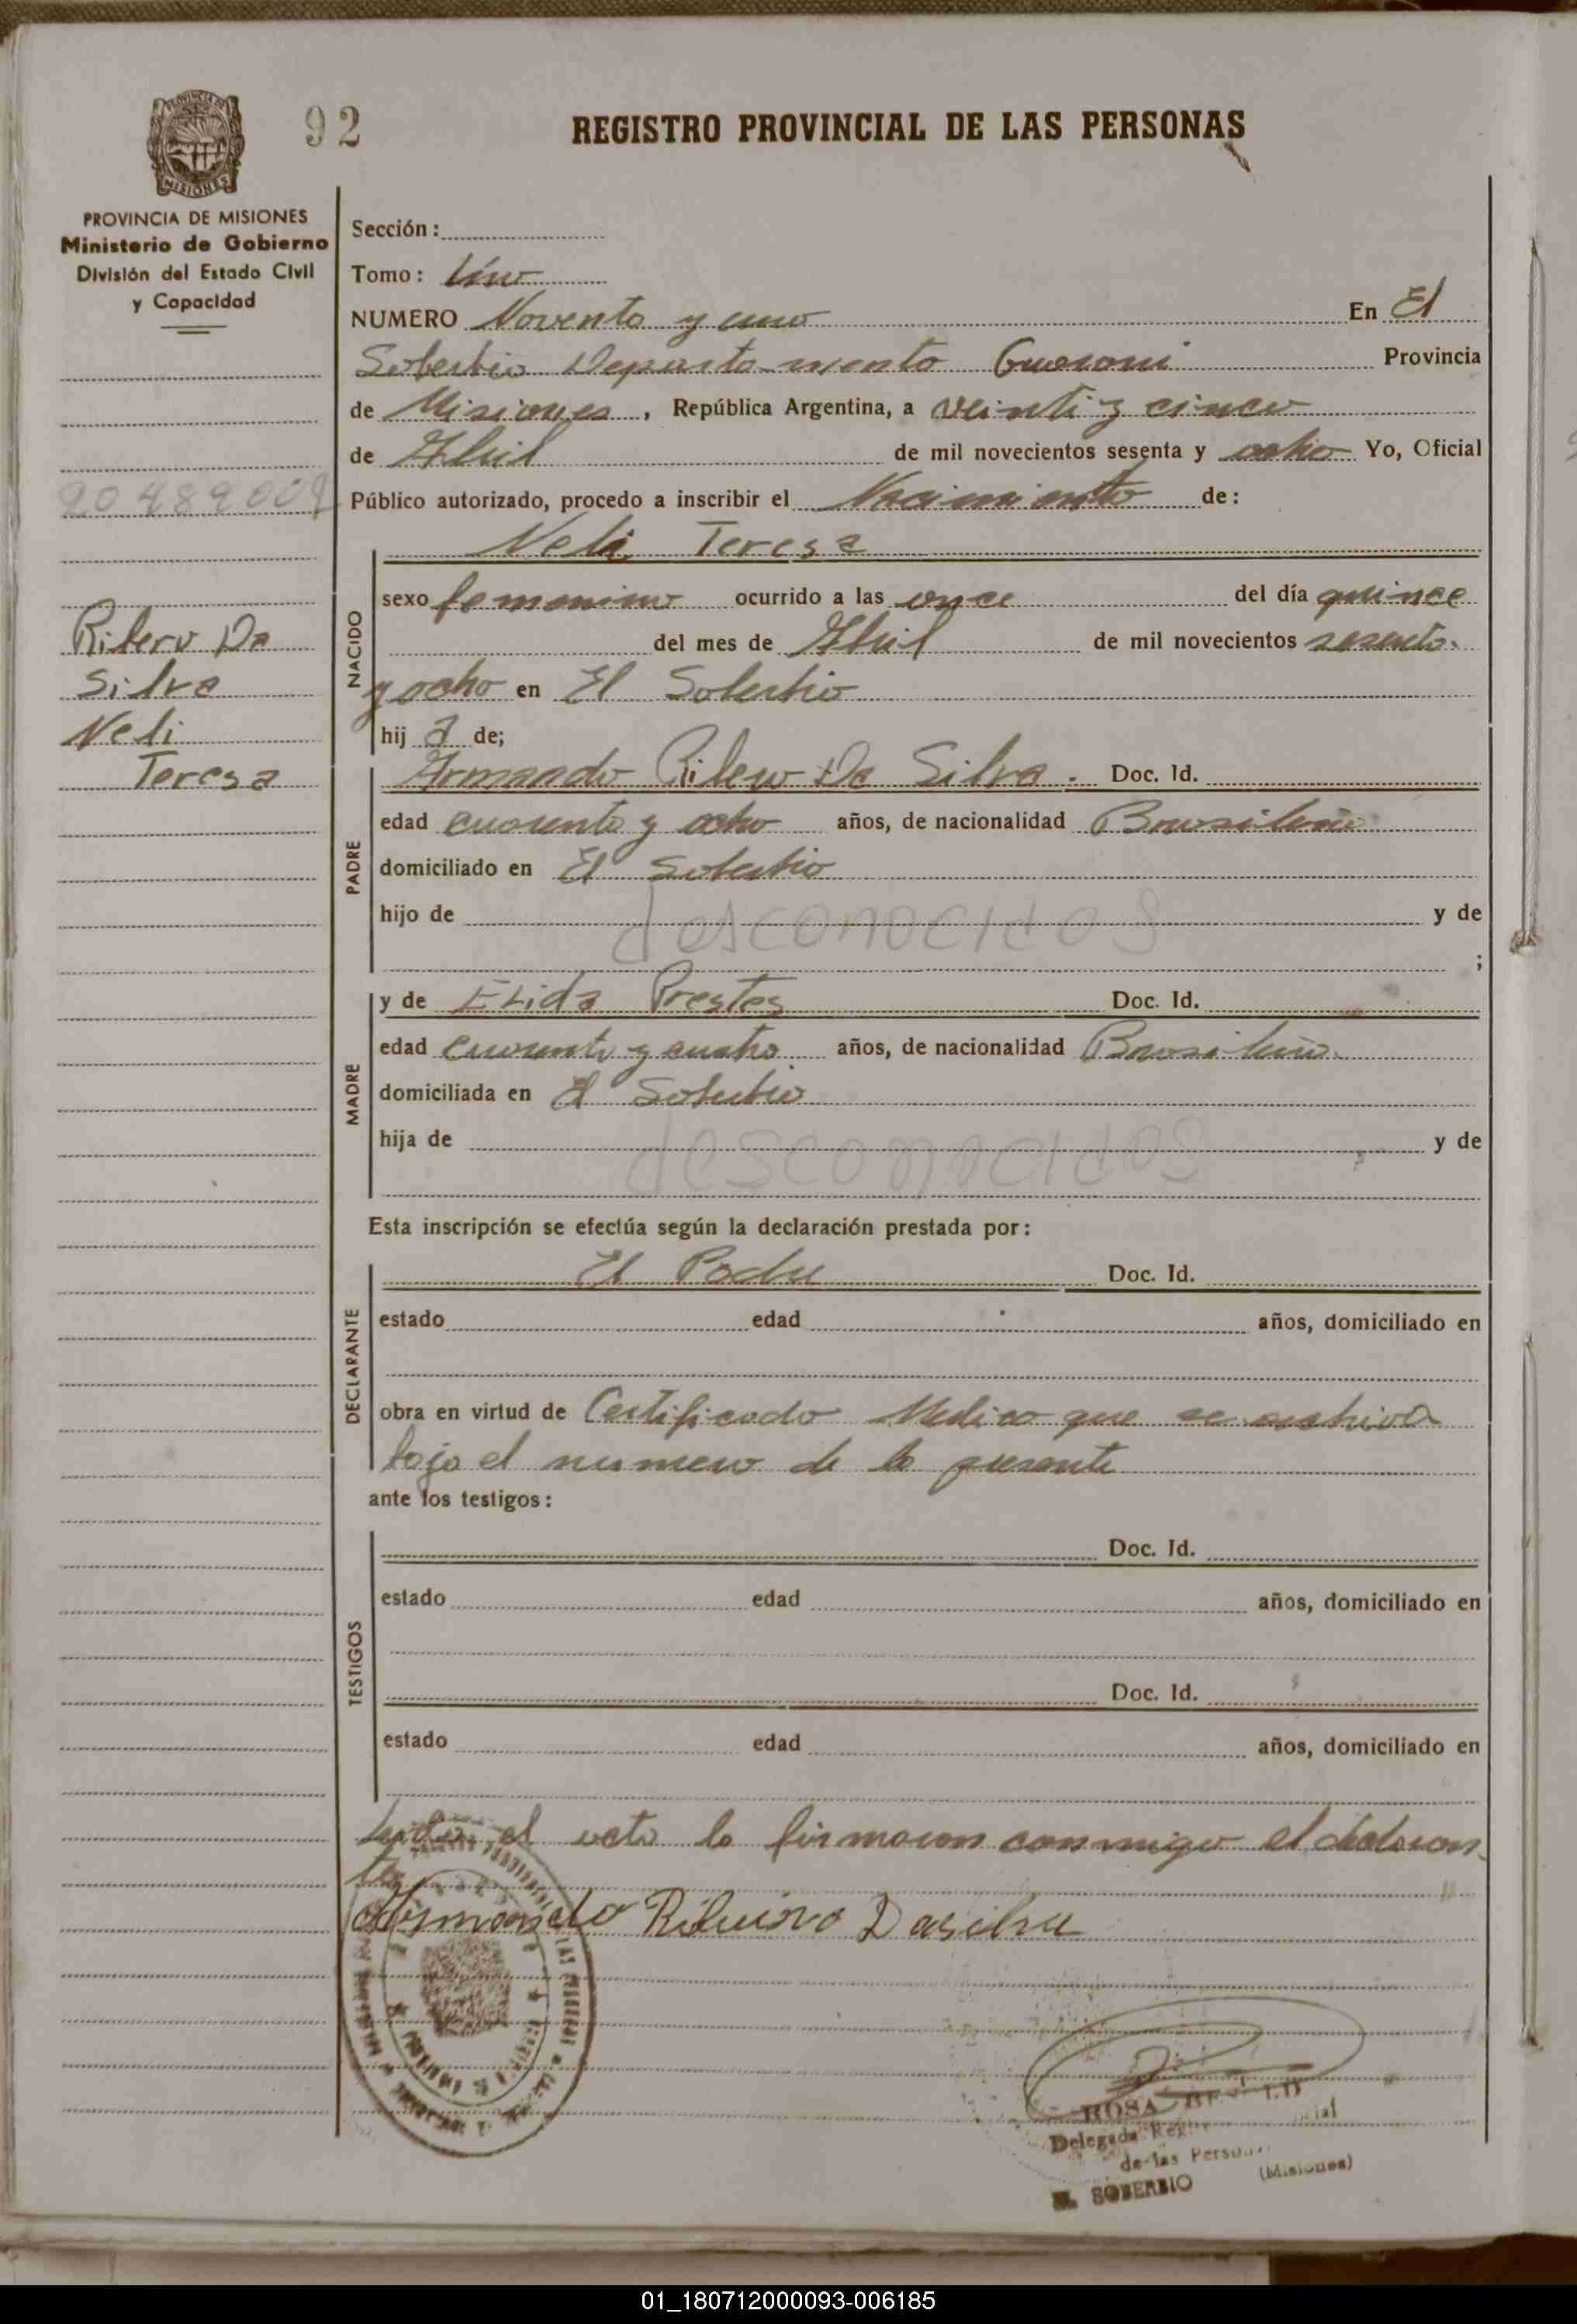 PROVINCIA DE MISIONES
92
REGISTRO PROVINCIAL DE LAS PERSONAS
PROVINCIA DE MISIONES
Ministerio de Gobierno
División del Estado Civil
y Capacidad
20489009
Ribero Da
Silva
Neli
Teresa
Sección:
Tomo: Uno
NUMERO Noventa y uno En El
Soberbio Departamento Guarani Provincia
de Misiones, República Argentina, a veinti y cinco
de Abril de mil novecientos sesenta y ocho Yo, Oficial
Público autorizado, procedo a inscribir el Nacimiento de:
Neli Teresa
NACIDO
sexo femenino ocurrido a las once del día quince
del mes de Abril de mil novecientos sesenta
y ocho en El Soberbio
hij a de;
PADRE
Armando Ribero Da Silva. Doc. Id.
edad cuarenta y ocho años, de nacionalidad Brasileña
domiciliado en El Soberbio
hijo de desconocidos y de
;
MADRE
y de Elida Prestes Doc. Id.
edad cuarenta y cuatro años, de nacionalidad Brasileña
domiciliada en El Soberbio
hija de desconocidos y de
Esta inscripción se efectúa según la declaración prestada por:
DECLARANTE
El Padre Doc. Id.
estado edad años, domiciliado en
obra en virtud de Certificado Medico que se archiva
bajo el numero de la presente
ante los testigos:
TESTIGOS
Doc. Id.
estado edad años, domiciliado en
Doc. Id.
estado edad años, domiciliado en
el acta la firmaron conmigo el declaran
te
Armando Ribeiro Dasilva
ROSA
Delegada
de las Person
EL SOBERBIO (Misiones)
01_180712000093-006185